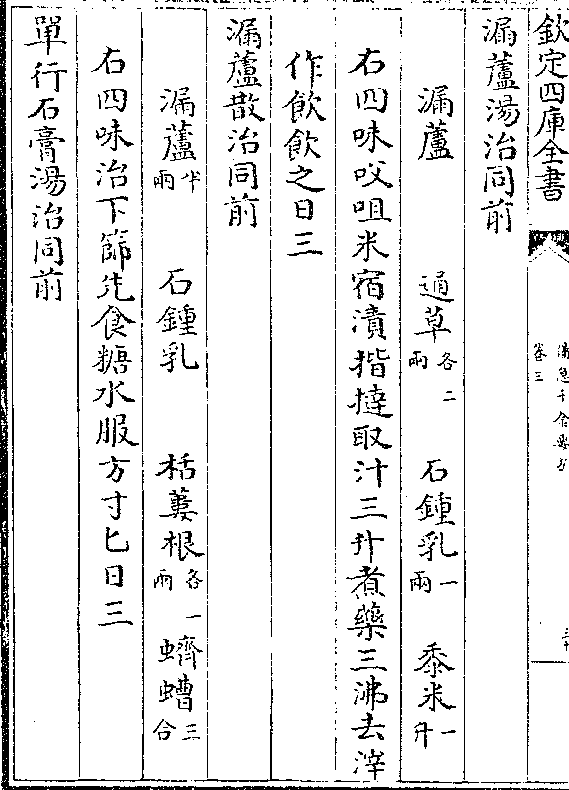 欽定四庫全書
備急千金要方
卷三
漏蘆湯治同前
漏蘆 通草各二兩 石鍾乳一兩 黍米一升
右四味㕮咀米宿漬揩撻取汁三升煮藥三沸去滓
作飲飲之日三
漏蘆散治同前
漏蘆半兩 石鍾乳 栝蔞根各一兩 蠐螬三合
右四味治下篩先食糖水服方寸匕日三
單行石膏湯治同前